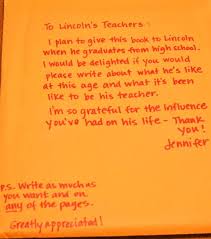 To Lincoln's Teachers:
I plan to give this book to Lincoln
when he graduates from high school.
I would be delighted if you would
please write about what he's like
at this age and what it's been
like to be his teacher.
I'm so grateful for the influence
you've had on his life - Thank
you!
Jennifer
P.S. Write as much as
you want and on
any of the pages.
Greatly appreciated!